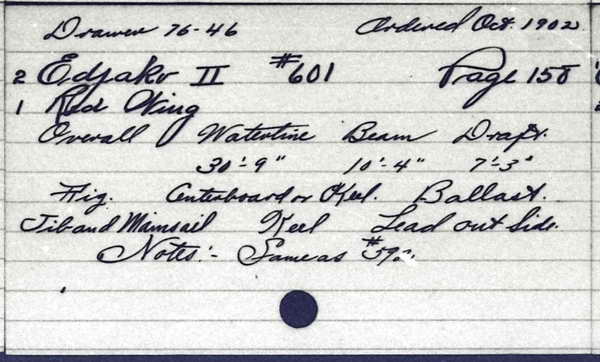 Drawer 76-46 Ordered Oct. 1902
2 Edjako II #601 Page 158
1 Red Wing
Overall Waterline Beam Draft.
30'-9" 10'-4" 7'-3"
Rig. Centerboard or Keel. Ballast.
Jib and Mainsail Keel Lead out side.
Notes:- Same as